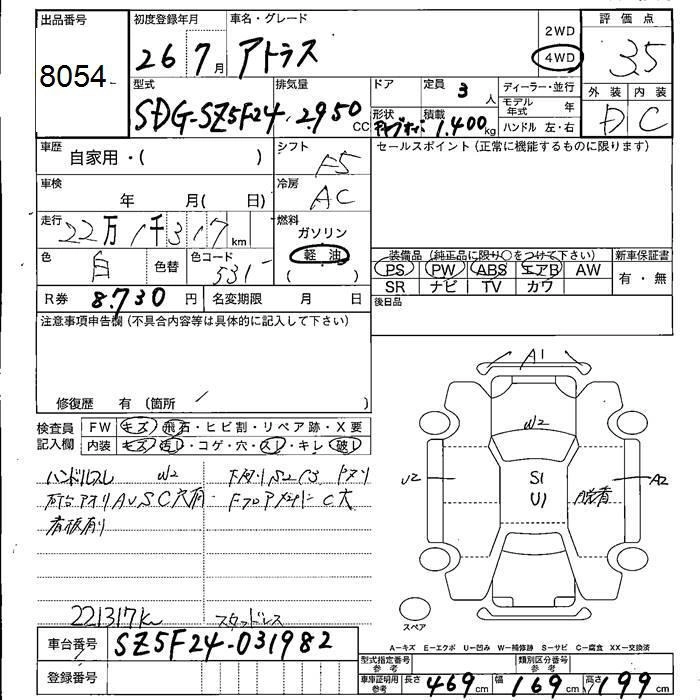 出品番号 初度登録年月 車名・グレード 2WD 評価点
8054 26 7月 アトラス 4WD 3.5
型式 排気量 ドア 定員 3人 ディーラー・並行 外装 内装
SDG-SZ5F24 2950CC 形状 積載 1,400kg モデル年式 年 D C
ハンドル 左・右
車歴 自家用・( ) シフト F5 セールスポイント(正常に機能するものに限ります)
車検 年 月( 日) 冷房 AC
走行 22万1千317km 燃料 ガソリン
軽油
( )
色 白 色替 色コード 531 装備品(純正品に限り○をつけて下さい) 新車保証書
PS PW ABS エアB AW 有・無
SR ナビ TV カワ
R券 8,730円 名変期限 月 日 後日品
注意事項申告欄(不具合内容等は具体的に記入して下さい)
修復歴 有(箇所 )
検査員記入欄 FW キズ・飛石・ヒビ割・リペア跡・X要
内装 キズ・汚れ・コゲ・穴・スレ・キレ・破れ
ハンドルスレ W2
AVSC穴有
看板有り C大
A1
W2
S1
U1
U2
A2
脱着
スペア
221317km スタッドレス
車台番号 SZ5F24-031982
登録番号
A-キズ E-エクボ U-凹み W-補修跡 S-サビ C-腐食 XX-交換済
型式指定番号参考 類別区分番号参考
車庫証明用参考 長さ469cm 幅169cm 高さ199cm